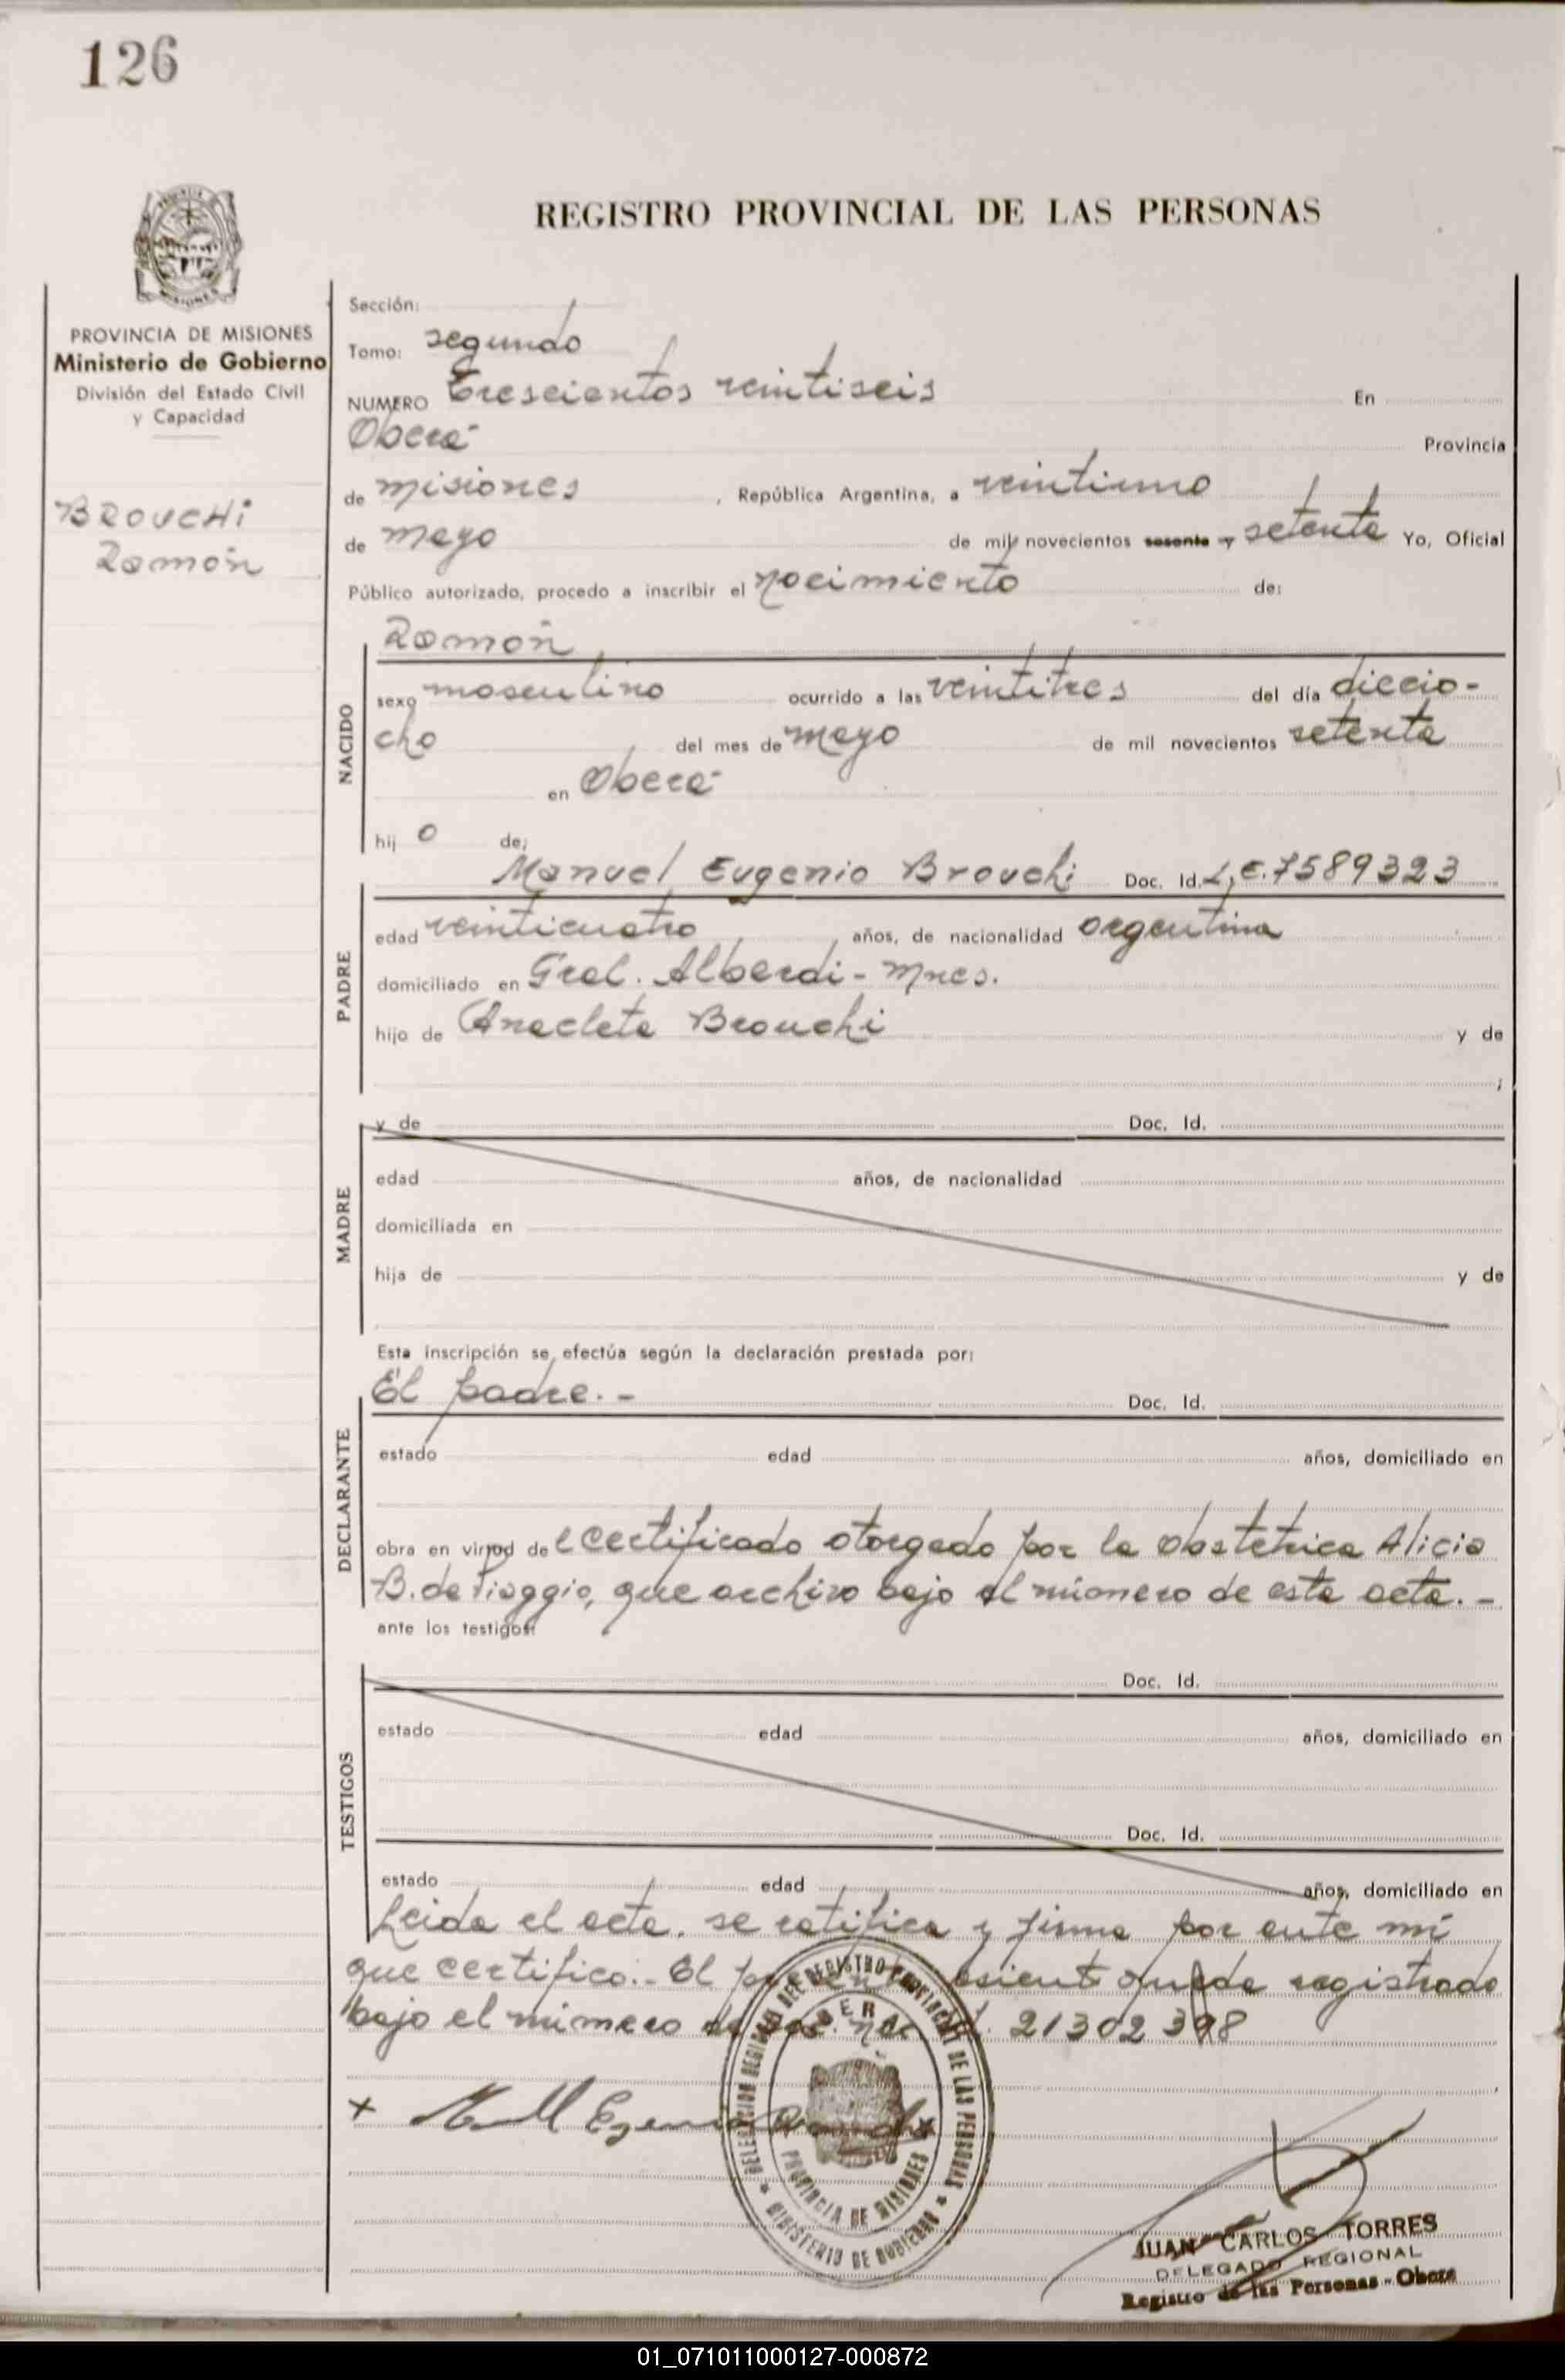 126
REGISTRO PROVINCIAL DE LAS PERSONAS
PROVINCIA DE MISIONES
Ministerio de Gobierno
División del Estado Civil
y Capacidad
BROUCHI
Ramón
Sección:
Tomo: segundo
NUMERO Trescientos veintiseis En
Oberá Provincia
de misiones, República Argentina, a veintiuno
de mayo de mil novecientos sesenta y setenta Yo, Oficial
Público autorizado, procedo a inscribir el nacimiento de:
Ramón
NACIDO
sexo masculino ocurrido a las veintitres del día diecio-
cho del mes de mayo de mil novecientos setenta
en Oberá
hij o de;
Manuel Eugenio Brouchi Doc. Id. L.E. 7589323
PADRE
edad veinticuatro años, de nacionalidad argentina
domiciliado en Gral. Alberdi - Mnes.
hijo de Anacleta Brouchi y de
;
MADRE
y de Doc. Id.
edad años, de nacionalidad
domiciliada en
hija de y de
Esta inscripción se efectúa según la declaración prestada por:
El padre. - Doc. Id.
DECLARANTE
estado edad años, domiciliado en
obra en virtud de l certificado otorgado por la obstetrica Alicia
B. de Viaggio, que archivo bajo el número de esta acta. -
ante los testigos:
TESTIGOS
Doc. Id.
estado edad años, domiciliado en
Doc. Id.
estado edad años, domiciliado en
Leida el acta, se ratifica y firma por ante mí
que certifico. - El presente asiento queda registrado
bajo el número de 21302398
x
DELEGACION REGIONAL DEL REGISTRO PROVINCIAL DE LAS PERSONAS
PROVINCIA DE MISIONES
MINISTERIO DE GOBIERNO
JUAN CARLOS TORRES
DELEGADO REGIONAL
Registro de las Personas - Obera
01_071011000127-000872